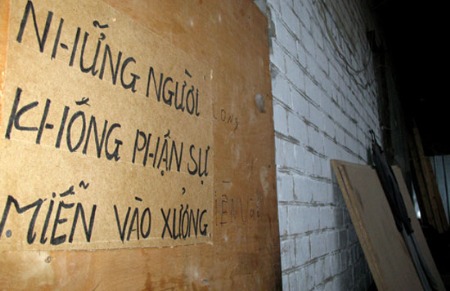 NHỮNG NGƯỜI
KHÔNG PHẬN SỰ
MIỄN VÀO XƯỞNG